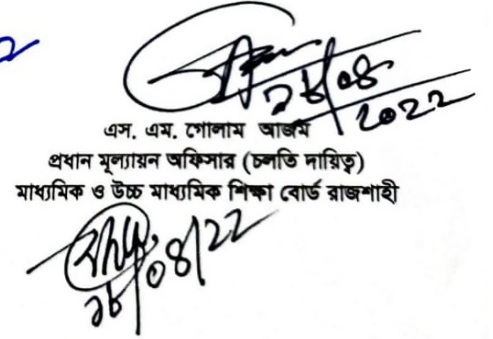 ২৮/০৪
২০২২
এস. এম. গোলাম আজম
প্রধান মূল্যায়ন অফিসার (চলতি দায়িত্ব)
মাধ্যমিক ও উচ্চ মাধ্যমিক শিক্ষা বোর্ড রাজশাহী
২৮/০৪/২২